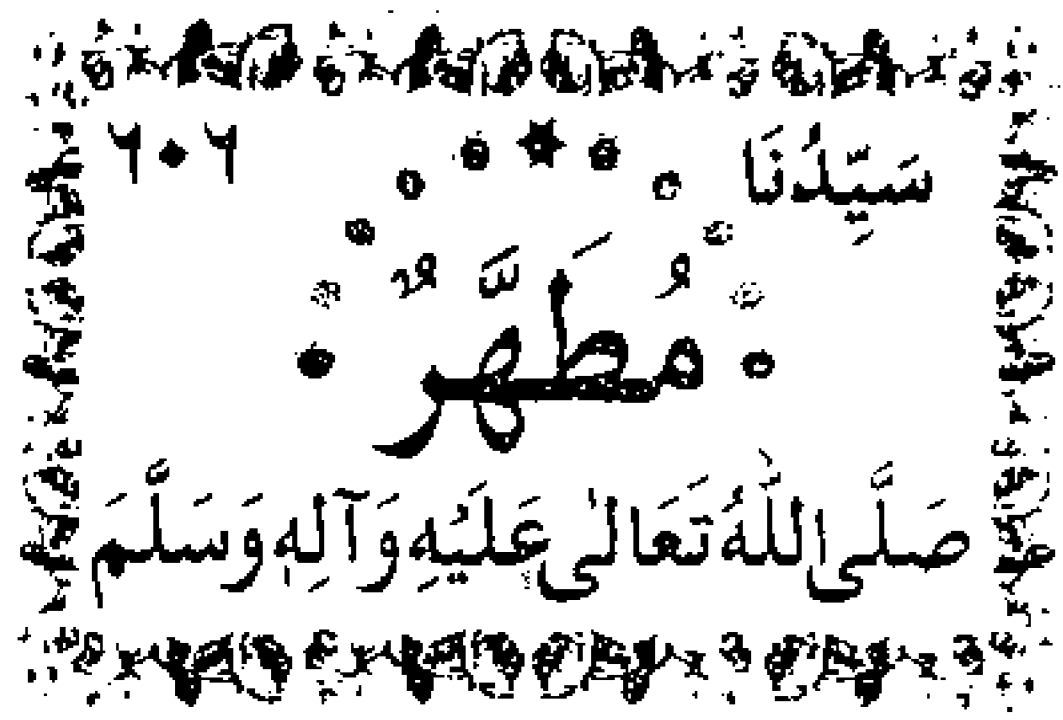 سَيِّدُنَا ٦٠٦
مُطَهَّرٌ
صَلَّى اللّٰهُ تَعَالٰى عَلَيْهِ وَآلِهٖ وَسَلَّمَ